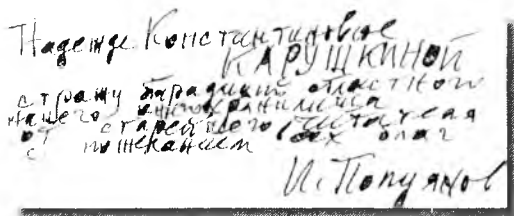 Надежде Константиновне
КАРУШКИНОЙ
стражу традиций областного
нашего книгохранилища
от старейшего читателя
с пожеланием всех благ
И. Попуянов